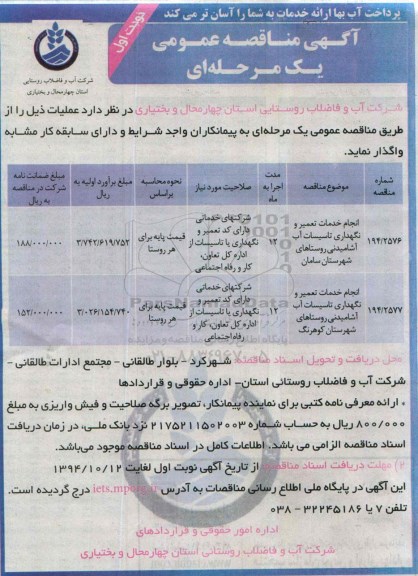 پرداخت آب بها ارائه خدمات به شما را آسان تر می کند
نوبت اول
آگهی مناقصه عمومی
یک مرحله‌ای
شرکت آب و فاضلاب روستایی
استان چهارمحال و بختیاری
شرکت آب و فاضلاب روستایی استان چهارمحال و بختیاری در نظر دارد عملیات ذیل را از
طریق مناقصه عمومی یک مرحله‌ای به پیمانکاران واجد شرایط و دارای سابقه کار مشابه
واگذار نماید.
شماره مناقصه | موضوع مناقصه | مدت اجرا به ماه | صلاحیت مورد نیاز | نحوه محاسبه براساس | مبلغ برآورد اولیه به ریال | مبلغ ضمانت نامه شرکت در مناقصه به ریال
۱۹۴/۲۵۷۶ | انجام خدمات تعمیر و نگهداری تاسیسات آب آشامیدنی روستاهای شهرستان سامان | ۱۲ | شرکتهای خدماتی دارای کد تعمیر و نگهداری یا تاسیسات از اداره کل تعاون، کار و رفاه اجتماعی | قیمت پایه برای هر روستا | ۳/۷۴۲/۶۱۹/۷۵۲ | ۱۸۸/۰۰۰/۰۰۰
۱۹۴/۲۵۷۷ | انجام خدمات تعمیر و نگهداری تاسیسات آب آشامیدنی روستاهای شهرستان کوهرنگ | ۱۲ | شرکتهای خدماتی دارای کد تعمیر و نگهداری یا تاسیسات از اداره کل تعاون، کار و رفاه اجتماعی | قیمت پایه برای هر روستا | ۳/۰۲۶/۱۵۴/۷۴۰ | ۱۵۲/۰۰۰/۰۰۰
محل دریافت و تحویل اسناد مناقصه: شهرکرد - بلوار طالقانی - مجتمع ادارات طالقانی -
شرکت آب و فاضلاب روستائی استان- اداره حقوقی و قراردادها
* ارائه معرفی نامه کتبی برای نماینده پیمانکار، تصویر برگه صلاحیت و فیش واریزی به مبلغ
۸۰۰/۰۰۰ ریال به حساب شماره ۲۱۷۵۲۱۱۵۰۲۰۰۳ نزد بانک ملی، در زمان دریافت
اسناد مناقصه الزامی می باشد. اطلاعات کامل در اسناد مناقصه موجود می‌باشد.
۲) مهلت دریافت اسناد مناقصه: از تاریخ آگهی نوبت اول لغایت ۱۳۹۴/۱۰/۱۲
این آگهی در پایگاه ملی اطلاع رسانی مناقصات به آدرس iets.mporg.ir درج گردیده است.
تلفن ۷ یا ۳۲۲۴۵۱۸۶ - ۰۳۸
اداره امور حقوقی و قراردادهای
شرکت آب و فاضلاب روستائی استان چهارمحال و بختیاری